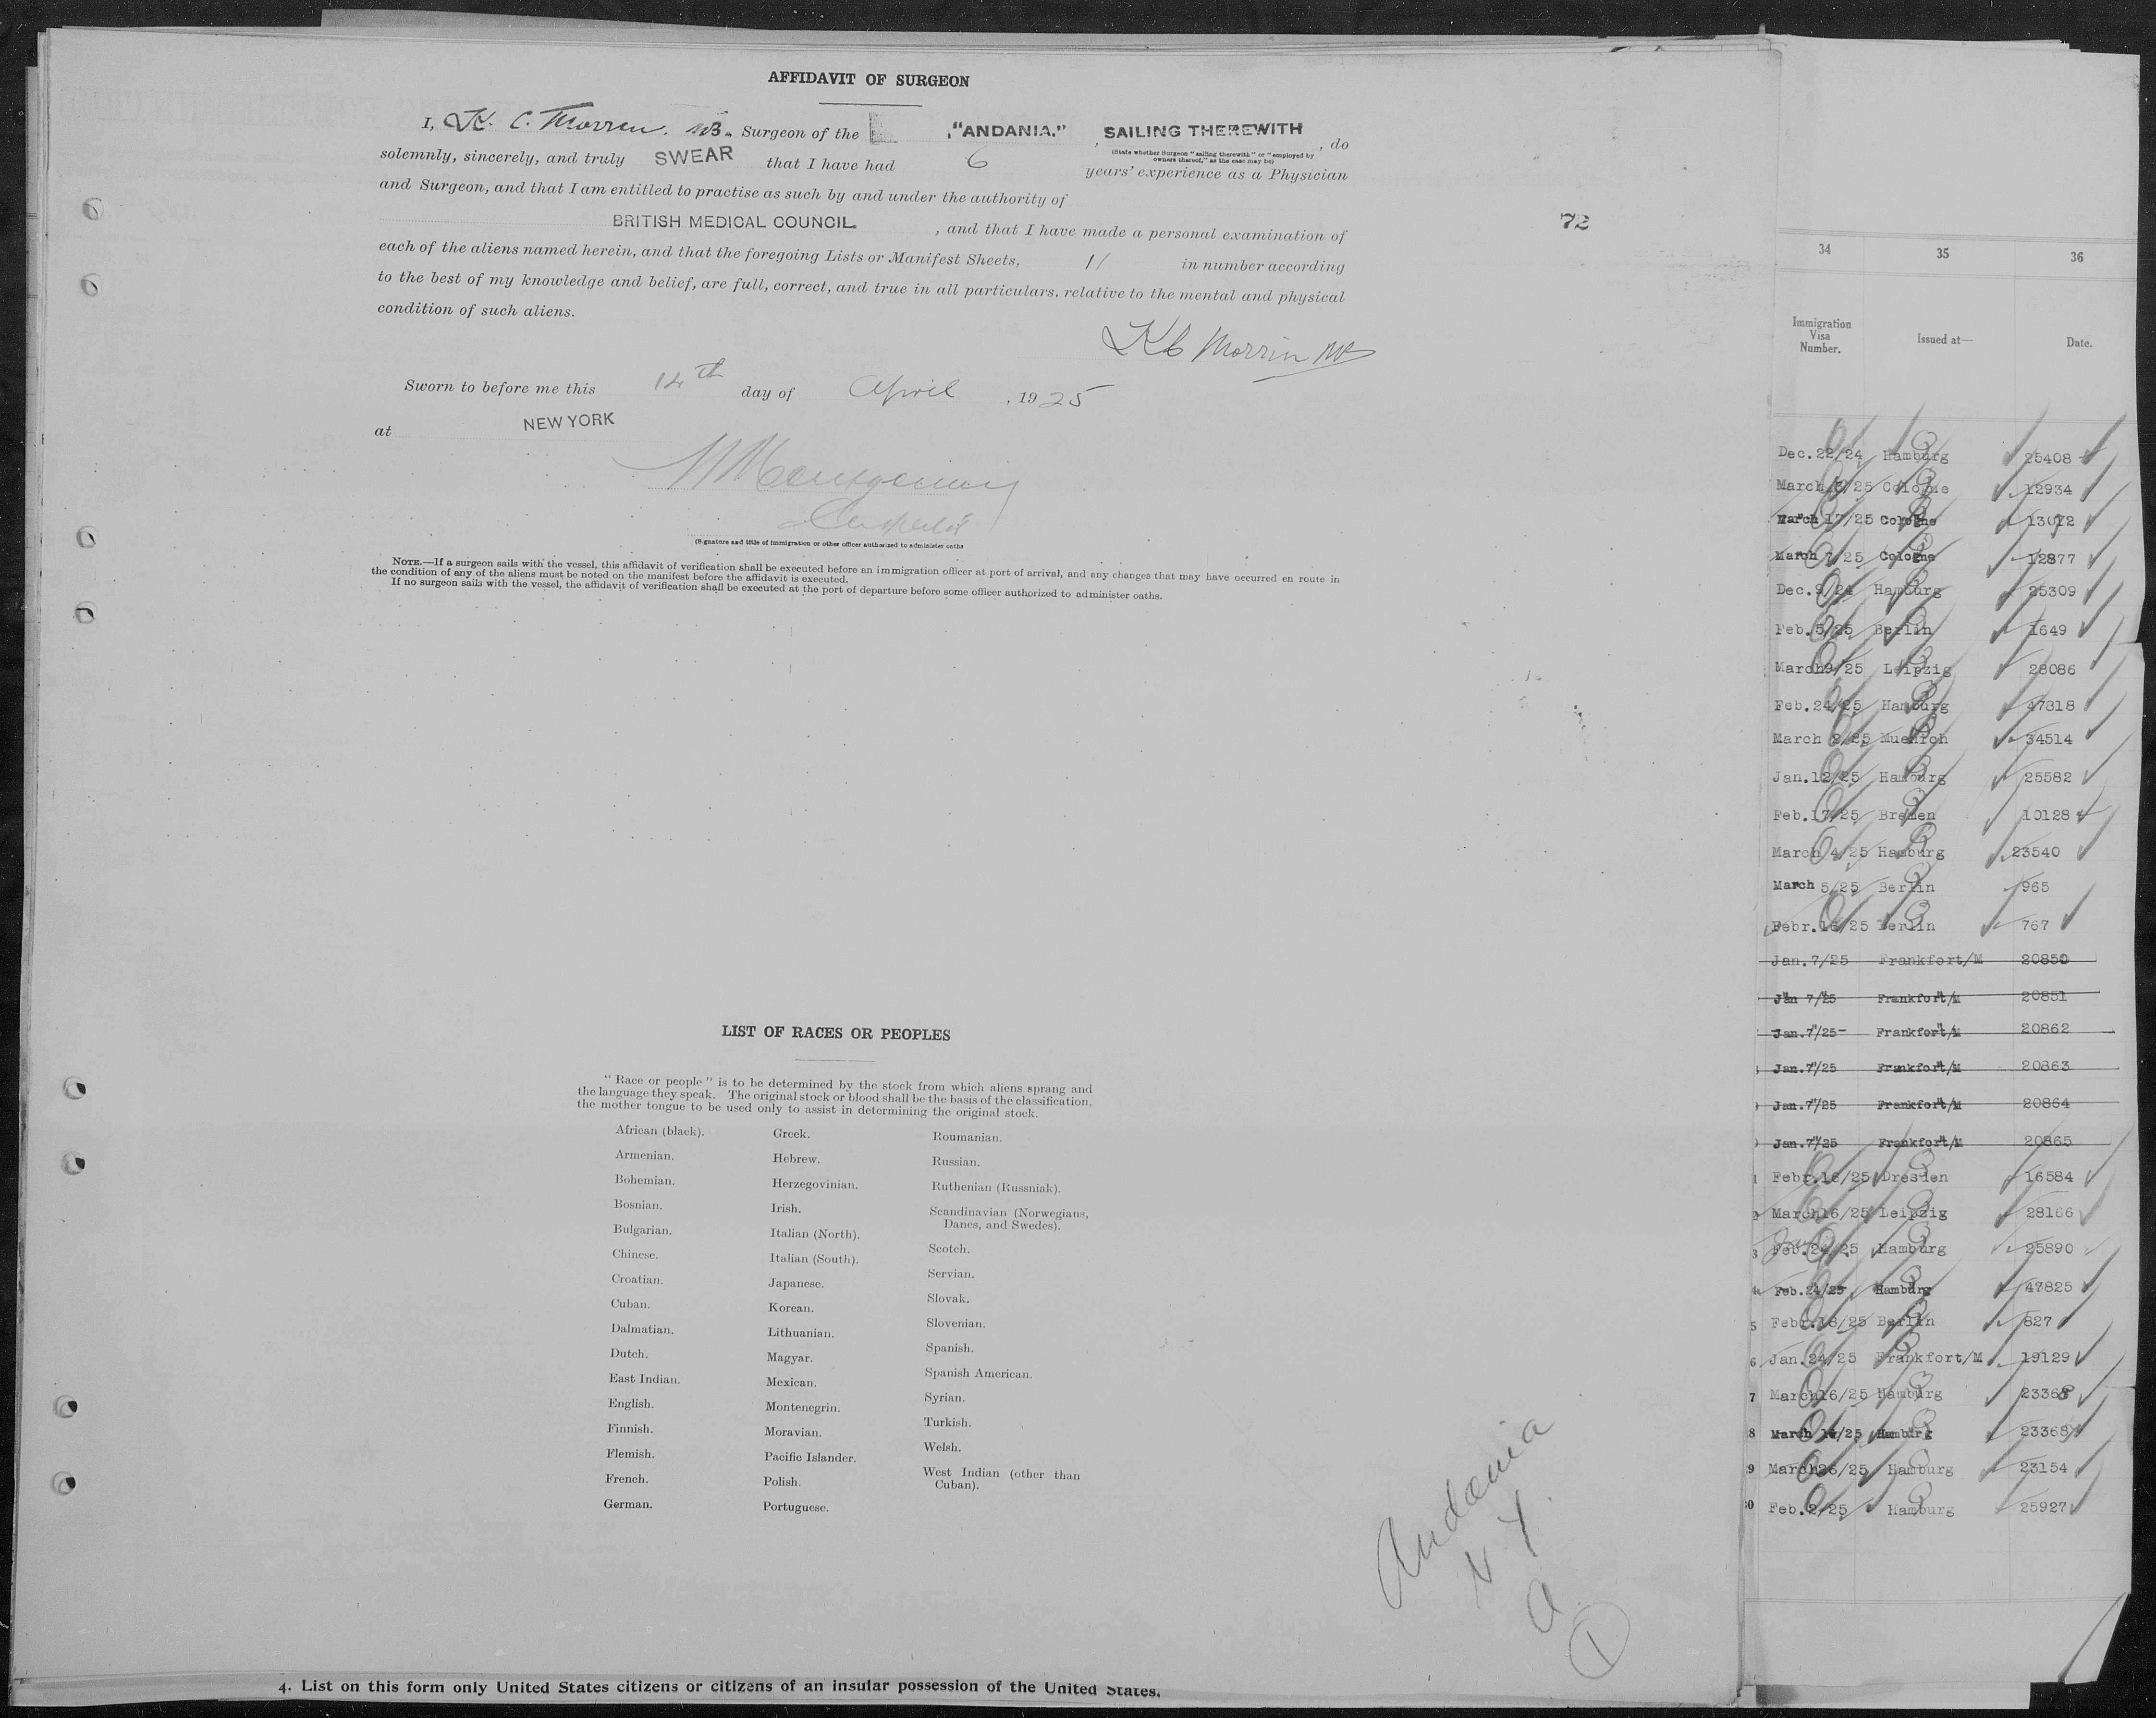 AFFIDAVIT OF SURGEON
I, K. C. Morren. MB. Surgeon of the "ANDANIA." , SAILING THEREWITH , do
(State whether Surgeon "sailing therewith" or "employed by
owners thereof," as the case may be)
solemnly, sincerely, and truly SWEAR that I have had 6 years' experience as a Physician
and Surgeon, and that I am entitled to practise as such by and under the authority of
BRITISH MEDICAL COUNCIL , and that I have made a personal examination of
each of the aliens named herein, and that the foregoing Lists or Manifest Sheets, 11 in number according
to the best of my knowledge and belief, are full, correct, and true in all particulars, relative to the mental and physical
condition of such aliens.
K C Morrin MB
Sworn to before me this 14th day of April , 1925
at NEW YORK
(Signature and title of immigration or other officer authorized to administer oaths
NOTE.—If a surgeon sails with the vessel, this affidavit of verification shall be executed before an immigration officer at port of arrival, and any changes that may have occurred en route in
the condition of any of the aliens must be noted on the manifest before the affidavit is executed.
If no surgeon sails with the vessel, the affidavit of verification shall be executed at the port of departure before some officer authorized to administer oaths.
LIST OF RACES OR PEOPLES
"Race or people" is to be determined by the stock from which aliens sprang and
the language they speak. The original stock or blood shall be the basis of the classification,
the mother tongue to be used only to assist in determining the original stock.
African (black).
Armenian.
Bohemian.
Bosnian.
Bulgarian.
Chinese.
Croatian.
Cuban.
Dalmatian.
Dutch.
East Indian.
English.
Finnish.
Flemish.
French.
German.
Greek.
Hebrew.
Herzegovinian.
Irish.
Italian (North).
Italian (South).
Japanese.
Korean.
Lithuanian.
Magyar.
Mexican.
Montenegrin.
Moravian.
Pacific Islander.
Polish.
Portuguese.
Roumanian.
Russian.
Ruthenian (Russniak).
Scandinavian (Norwegians,
Danes, and Swedes).
Scotch.
Servian.
Slovak.
Slovenian.
Spanish.
Spanish American.
Syrian.
Turkish.
Welsh.
West Indian (other than
Cuban).
Andania
N Y
a
1
4. List on this form only United States citizens or citizens of an insular possession of the United States.
72
34 35 36
Immigration
Visa
Number.
Issued at—
Date.
Dec.22/24 Hamburg 25408
March 3/25 Cologne 12934
March 17/25 Cologne 13072
March 7/25 Cologne 12877
Dec.9/24 Hamburg 25309
Feb.5/25 Berlin 1649
March9/25 Leipzig 28086
Feb.24/25 Hamburg 47818
March 2/25 Muenich 34514
Jan.12/25 Hamburg 25582
Feb.17/25 Bremen 10128
March 4/25 Hamburg 23540
March 5/25 Berlin 965
Febr.16/25 Berlin 767
Jan.7/25 Frankfort/M 20850
Jan 7/25 Frankfort/M 20851
Jan.7/25 Frankfort/M 20862
Jan.7/25 Frankfort/M 20863
Jan.7/25 Frankfort/M 20864
Jan.7/25 Frankfort/M 20865
Febr.16/25 Dresden 16584
March16/25 Leipzig 28166
3 Feb.24/25 Hamburg 25890
Feb.24/25 Hamburg 47825
5 Febr.18/25 Berlin 827
6 Jan.24/25 Frankfort/M 19129
7 March16/25 Hamburg 23368
8 March 16/25 Hamburg 23369
9 March26/25 Hamburg 23154
30 Feb.2/25 Hamburg 25927